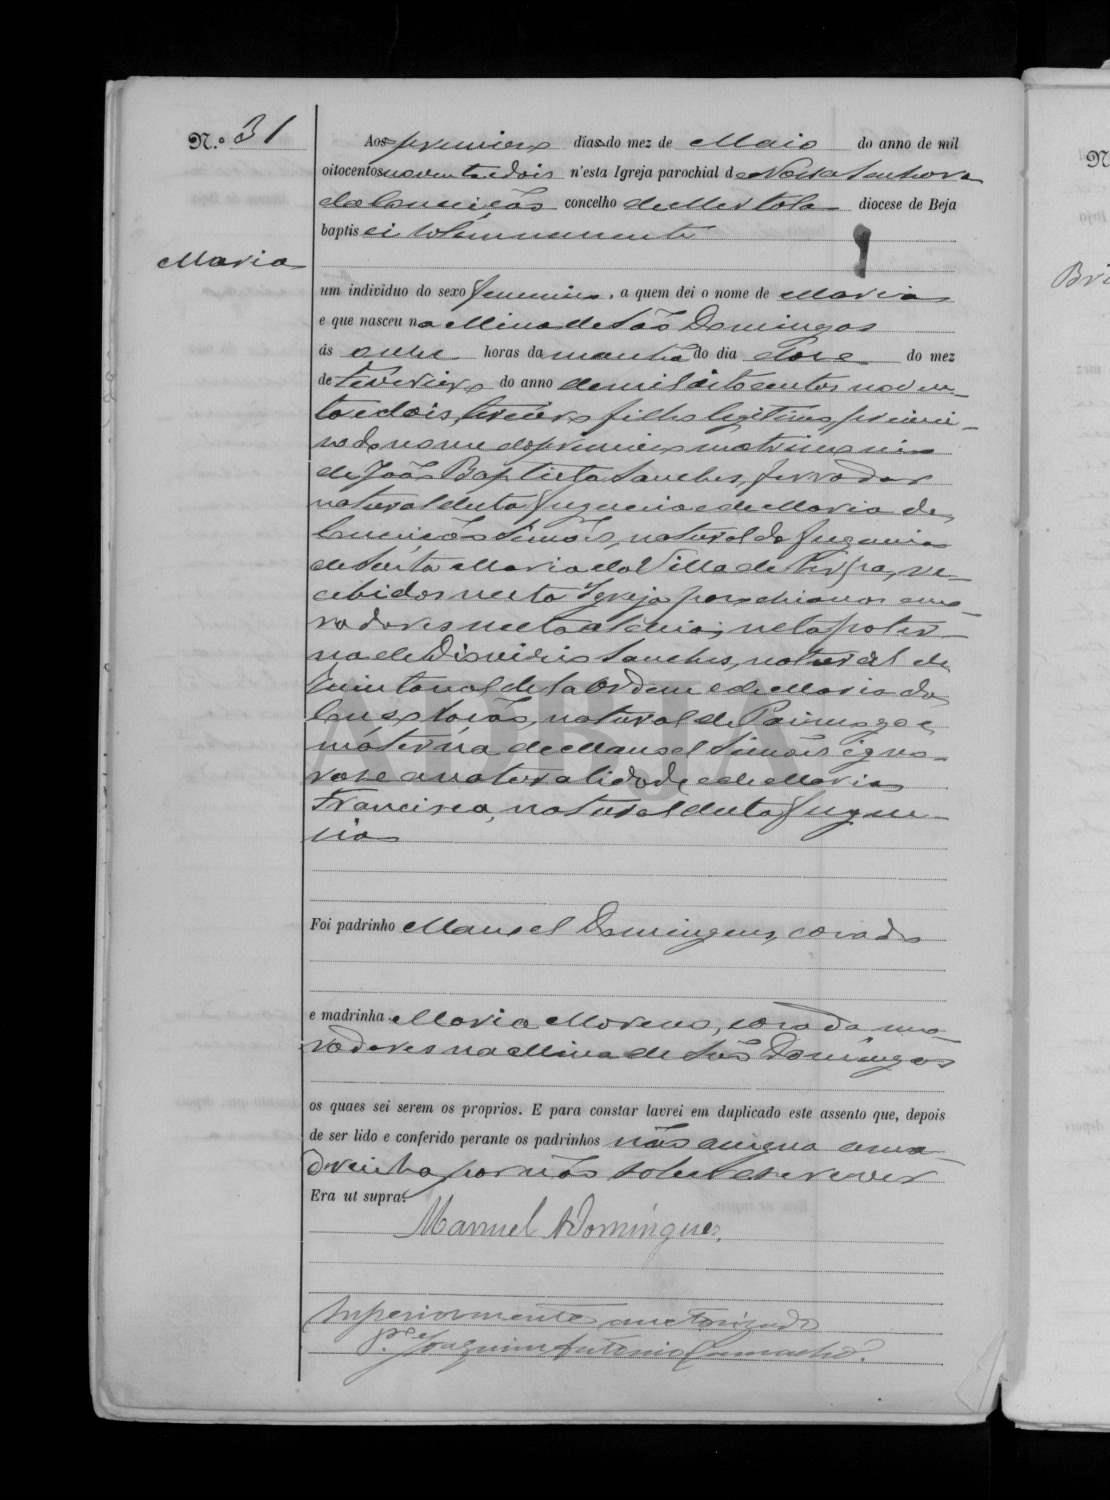 N.º 31
Aos primeiro dias do mez de Maio do anno de mil
oitocentos noventa e dois n'esta Igreja parochial de Nossa Senhora
da Conceição concelho de Mertola diocese de Beja
baptisei solemnemente
Maria
um individuo do sexo femenino, a quem dei o nome de Maria
e que nasceu na Mina de São Domingos
ás horas da manhã do dia doze do mez
de Fevereiro do anno de mil oito centos noven-
ta e dois, terceiro filho legitimo, primei-
ro do nome do primeiro matrimonio
de João Baptista Sanches, ferrador
natural desta freguesia e de Maria da
Conceição Simões, natural da freguesia
de Santa Maria da Villa de Serpa, re-
cebidos nesta Igreja parochianos e mo-
radores nesta aldeia; neta pater-
na de Dionisio Sanches, natural de
Quintanal de la Orden e de Maria da
Conceição, natural de Paimogo e
materna de Manoel Simões igno-
rase a naturalidade e de Maria
Francisca, natural desta fregue-
sia
Foi padrinho Manoel Domingues, casado
e madrinha Maria Morena, casada mo-
radores na Mina de São Domingos
os quaes sei serem os proprios. E para constar lavrei em duplicado este assento que, depois
de ser lido e conferido perante os padrinhos não assigna a ma-
drinha por não saber escrever
Era ut supra.
Manuel Domingues.
Superiormente auctorisado
P.e Joaquim Antonio Camacho.
ADBJA
N
Bri